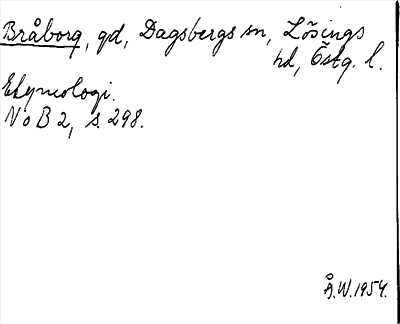 Bråborg, gd, Dagsbergs sn, Lösings
hd, Östg. l.
Etymologi.
NoB 2, s. 298.
Å.W. 1954.